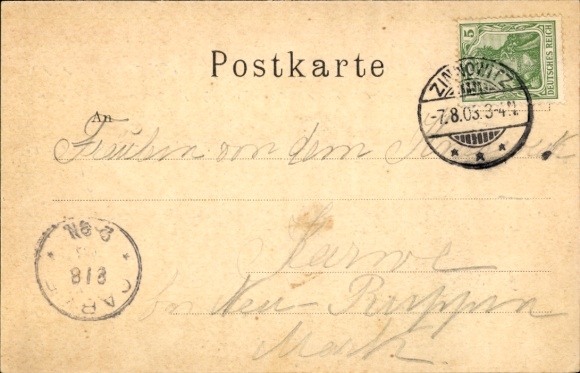 5
DEUTSCHES REICH
Postkarte
ZINNOWITZ
-7.8.03. 3-4 N.
An
von dem
Karwe
bei Neu-Ruppin
Mark.
8/8